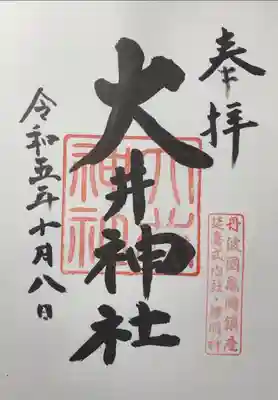 奉拝
大井神社
令和五年十月八日
大井
神社
丹波國亀岡鎮座
延喜式内社・勝明神